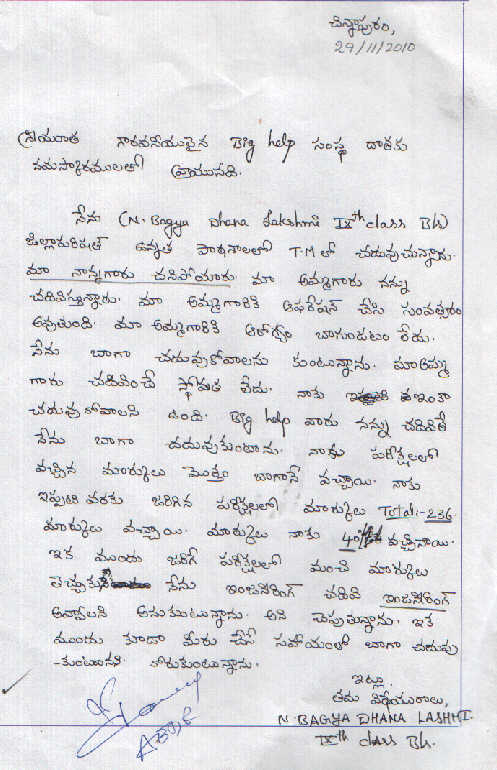 చిన్నాపురం,
29/11/2010
ప్రియమైన గౌరవనీయులైన Big help సంస్థ దాతకు
నమస్కారములతో వ్రాయునది.
నేను (N. Bagya Dhana Lakshmi IXth class B/s)
జిల్లాపరిషత్ ఉన్నత పాఠశాలలో T.M లో చదువుచున్నాను.
మా నాన్నగారు చనిపోయారు మా అమ్మగారు నన్ను
చదివిస్తున్నారు. మా అమ్మగారికి ఆపరేషన్ చేసి సంవత్సరం
అవుతుంది. మా అమ్మగారికి ఆరోగ్యం బాగుండటం లేదు.
నేను బాగా చదువుకోవాలను కుంటున్నాను. మా అమ్మ
గారు చదివించే స్థోమత లేదు. నాకు ఇంకా
చదువు కోవాలని ఉంది. Big help వారు నన్ను చదివితే
నేను బాగా చదువుకుంటాను. నాకు పరీక్షలలో
వచ్చిన మార్కులు మొత్తం బాగానే వచ్చాయి. నాకు
ఇప్పటి వరకు జరిగిన పరీక్షలలో మార్కులు Total:- 236
మార్కులు వచ్చాయి. మార్కులు నాకు 40% వచ్చినాయి.
ఇక ముందు జరిగే పరీక్షలలో మంచి మార్కులు
తెచ్చుకుని నేను ఇంజనీరింగ్ చదివి ఇంజనీరింగ్
అవ్వాలని అనుకుంటున్నాను. అని చెపుతున్నాను. ఇక
ముందు కూడా మీరు చేసే సహాయంతో బాగా చదువు
-కుంటానని కోరుకుంటున్నాను.
ఇట్లు
తమ విధేయురాలు,
N. BAGYA DHANA LASHMI.
IXth class B/s.